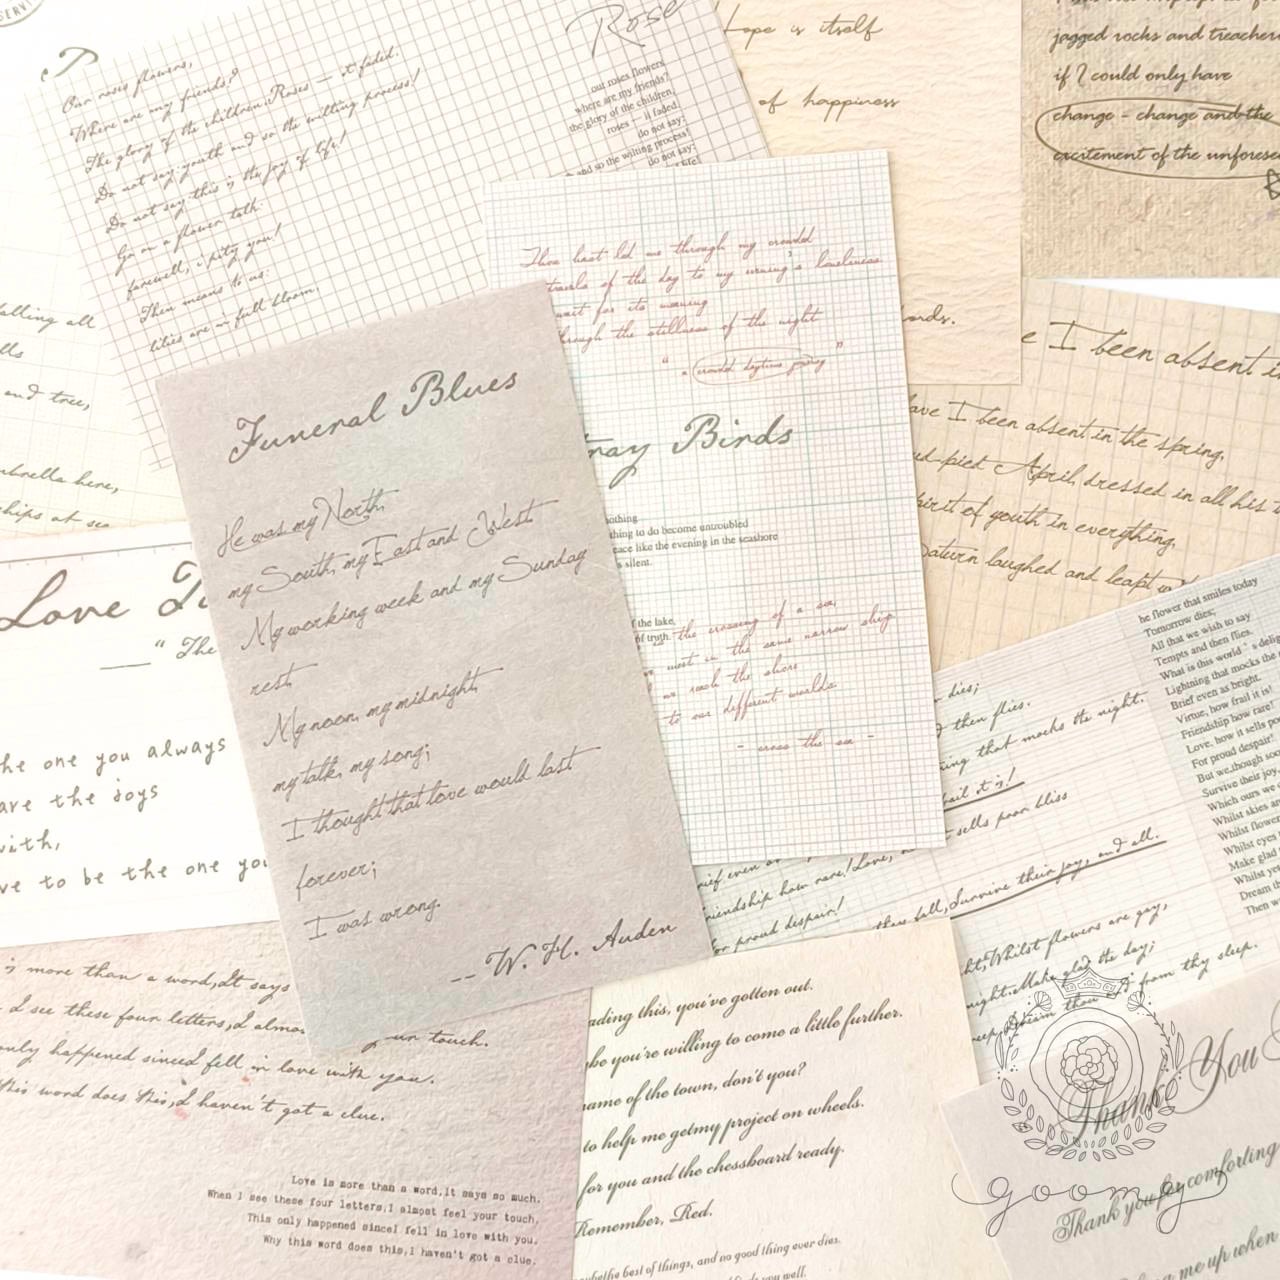 Our roses flowers,
Where are my friends?
The glory of the children,Roses — it faded.
Do not say:youth and so the wilting process!
Do not say:this is the joy of life!
Go on a flower talk:
farewell, i pity you!
Then means to us:
lilies are in full bloom.
Rose
our roses flowers
where are my friends?
the glory of the children,
roses — it faded.
do not say:
and so the wilting process!
do not say:
Hope is itself
of happiness
ords.
jagged rocks and treachero
if I could only have
change - change and the
excitement of the unforesee
alling all
lls
and tree,
mbrella here,
ships at sea
Thou hast led me through my crowded
travels of the day to my evening's loneliness.
wait for its meaning
through the stillness of the night
" a crowded daytime journey "
tray Birds
nothing
thing to do become untroubled
eace like the evening in the seashore
s silent.
f the lake,
of truth.
the crossing of a sea,
meet in the same narrow ship.
we reach the shore
to our different worlds.
- cross the sea -
e I been absent in
ave I been absent in the spring,
ud-pied April dressed in all his t
pirit of youth in everything,
Saturn laughed and leapt w
Funeral Blues
He was my North,
my South, my East and West
My working week and my Sunday
rest,
My noon, my midnight,
my talk, my song;
I thought that love would last
forever;
I was wrong.
-- W. H. Auden
Love
—— " The
he one you always
are the joys
with,
ve to be the one you
he flower that smiles today
Tomorrow dies;
All that we wish to say
Tempts and then flies.
What is this world's delig
Lightning that mocks the
Brief even as bright.
Virtue, how frail it is!
Friendship how rare!
Love, how it sells po
For proud despair!
But we,though soo
Survive their joy,
Which ours we c
Whilst skies ar
Whilst flower
Whilst eyes
Make glad
Whilst yet
Dream th
Then w
dies;
d then flies.
ing that mocks the night.
rail it is!
sells poor bliss
rief even a
riendship how rare!Love,
or proud despair!
they fall,Survive their joy, and all.
ht,Whilst flowers are gay,
night.Make glad the day;
eep,Dream thou
d from thy sleep.
is more than a word,It says
I see these four letters,I almo
our touch.
only happened sinceI fell in love with you.
this word does this,I haven't got a clue.
Love is more than a word,it says so much.
When I see these four letters,I almost feel your touch,
This only happened sinceI fell in love with you.
Why this word does this,I haven't got a clue.
ading this, you've gotten out.
be you're willing to come a little further.
name of the town, don't you?
to help me getmy project on wheels.
for you and the chessboard ready.
Remember, Red.
maybethe best of things, and no good thing ever dies.
you well.
Thank You
Thank you for comforting
me up when
goomoy